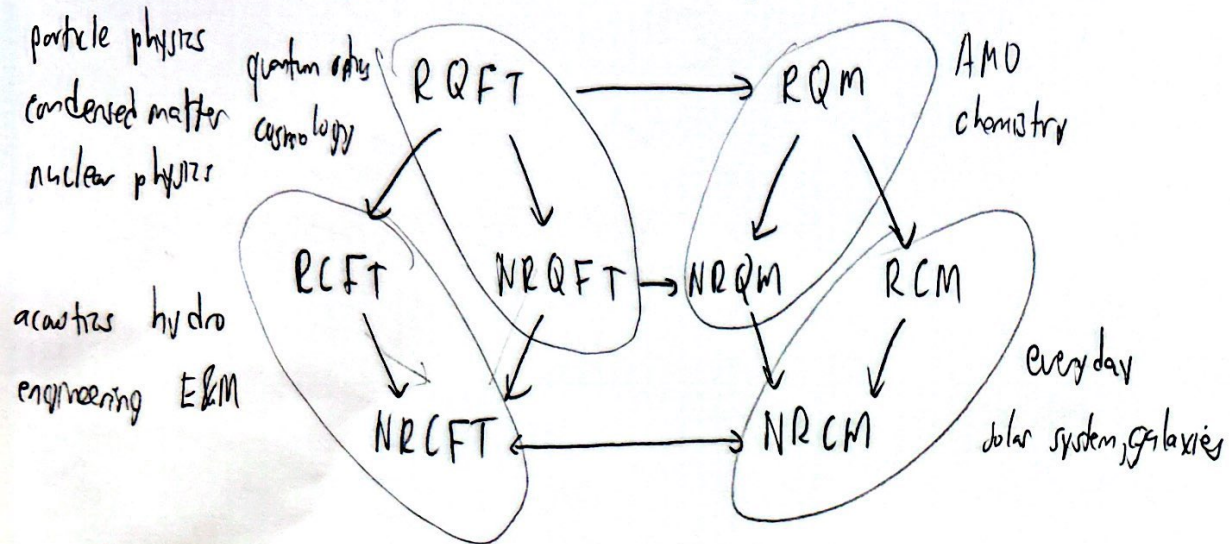 particle physics
condensed matter
nuclear physics
quantum optics
cosmology
RQFT
RQM
AMO
chemistry
RCFT
NRQFT
NRQM
RCM
acoustics hydro
engineering E&M
NRCFT
NRCM
everyday
solar system, galaxies